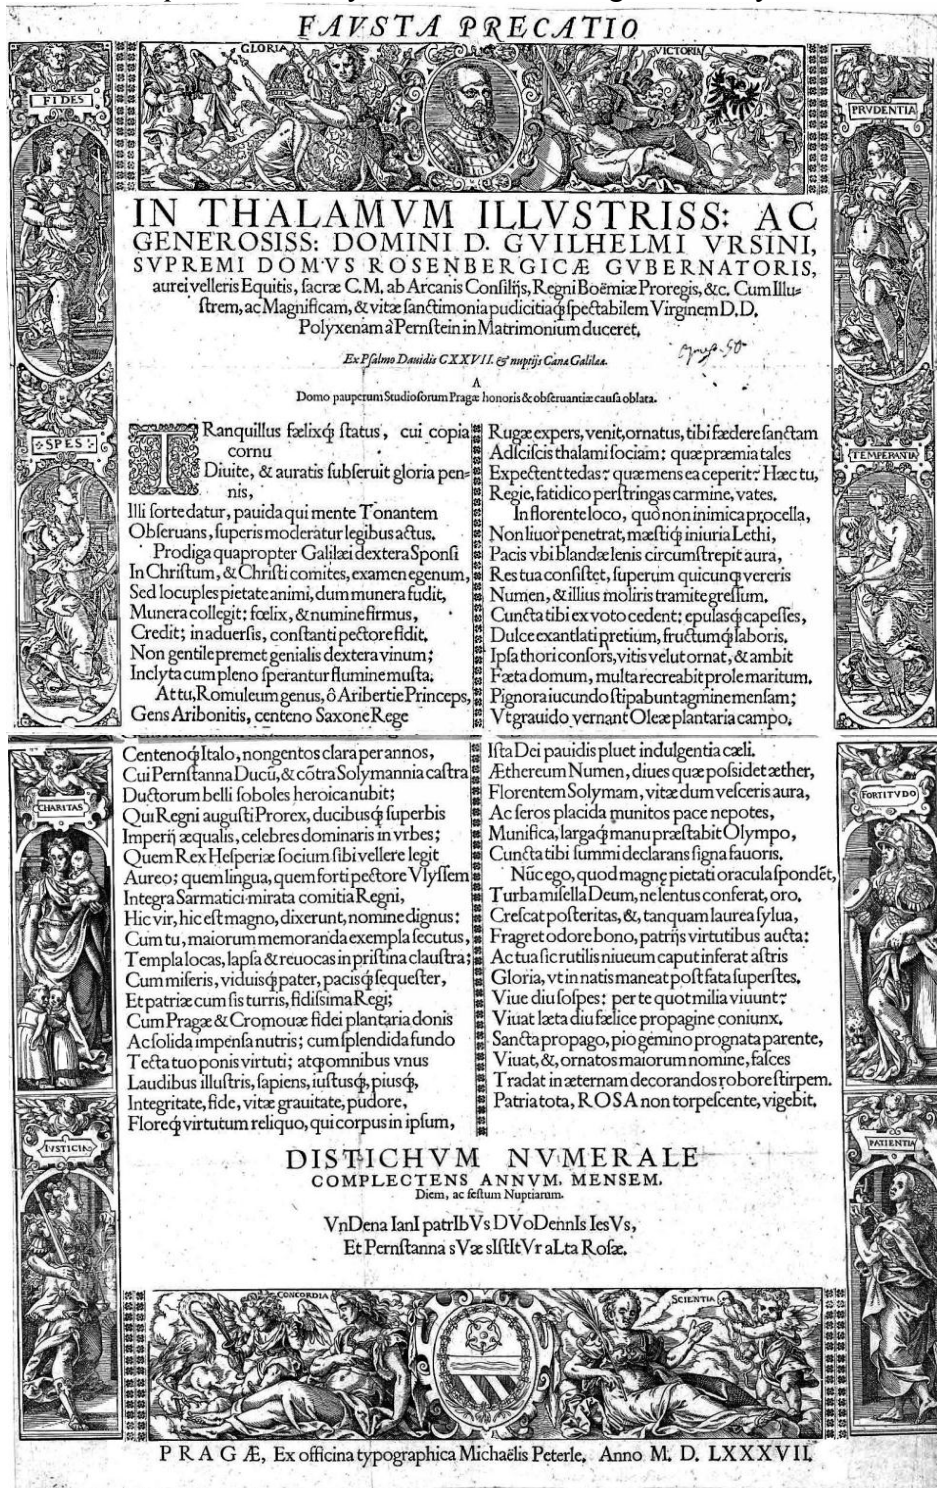 FAVSTA PRECATIO
GLORIA
VICTORIA
FIDES
PRVDENTIA
IN THALAMVM ILLVSTRISS: AC
GENEROSISS: DOMINI D. GVILHELMI VRSINI,
SVPREMI DOMVS ROSENBERGICÆ GVBERNATORIS,
aurei velleris Equitis, sacræ C.M. ab Arcanis Consilijs, Regni Boëmiæ Proregis, &c. Cum Illu-
strem, ac Magnificam, & vitæ sanctimonia pudicitiaqꝫ spectabilem Virginem D.D.
Polyxenam à Pernstein in Matrimonium duceret.
Ex Psalmo Dauidis CXXVII. & nuptijs Cana Galilææ.
A
Domo pauperum Studiosorum Pragæ honoris & obseruantiæ causa oblata.
SPES
TEMPERANTIA
TRanquillus fælixqꝫ status, cui copia
cornu
Diuite, & auratis subseruit gloria pen-
nis,
Illi sorte datur, pauida qui mente Tonantem
Obseruans, superis moderatur legibus actus.
Prodiga quapropter Galilæi dextera Sponsi
In Christum, & Christi comites, examen egenum,
Sed locuples pietate animi, dum munera fudit,
Munera collegit: fœlix, & numine firmus,
Credit; in aduersis, constanti pectore fidit.
Non gentile premet genialis dextera vinum;
Inclyta cum pleno sperantur flumine musta.
At tu, Romuleum genus, ô Aribertie Princeps,
Gens Aribonitis, centeno Saxone Rege
Centenoqꝫ Italo, nongentos clara per annos,
Cui Pernstanna Ducũ, & cõtra Solymannia castra
Ductorum belli soboles heroica nubit;
Qui Regni augusti Prorex, ducibusqꝫ superbis
Imperij æqualis, celebres dominaris in vrbes;
Quem Rex Hesperiæ socium sibi vellere legit
Aureo; quem lingua, quem forti pectore Vlyssem
Integra Sarmatici mirata comitia Regni,
Hic vir, hic est magno, dixerunt, nomine dignus:
Cum tu, maiorum memoranda exempla secutus,
Templa locas, lapsa & reuocas in pristina claustra;
Cum miseris, viduisqꝫ pater, pacisqꝫ sequester,
Et patriæ cum sis turris, fidissima Regi;
Cum Pragæ & Cromouæ fidei plantaria donis
Ac solida impensa nutris; cum splendida fundo
Tecta tuo ponis virtuti; atqꝫ omnibus vnus
Laudibus illustris, sapiens, iustusqꝫ, piusqꝫ,
Integritate, fide, vitæ grauitate, pudore,
Floreqꝫ virtutum reliquo, qui corpus in ipsum,
Rugæ expers, venit, ornatus, tibi fædere sanctam
Adsciscis thalami sociam: quæ præmia tales
Expectent tedas? quæ mens ea ceperit? Hæc tu,
Regie, fatidico perstringas carmine, vates.
In florente loco, quò non inimica procella,
Non liuor penetrat, mæstiqꝫ iniuria Lethi,
Pacis vbi blandæ lenis circumstrepit aura,
Res tua consistet, superum quicunqꝫ vereris
Numen, & illius moliris tramite gressum.
Cuncta tibi ex voto cedent: epulasqꝫ capesses,
Dulce exantlati pretium, fructumqꝫ laboris.
Ipsa thori consors, vitis velut ornat, & ambit
Fæta domum, multa recreabit prole maritum.
Pignora iucundo stipabunt agmine mensam;
Vt grauido vernant Oleæ plantaria campo.
Ista Dei pauidis pluet indulgentia cæli.
Æthereum Numen, diues quæ possidet æther,
Florentem Solymam, vitæ dum vesceris aura,
Ac seros placida munitos pace nepotes,
Munifica, largaqꝫ manu præstabit Olympo,
Cuncta tibi summi declarans signa fauoris.
Nũc ego, quod magnę pietati oracula spondẽt,
Turba misella Deum, ne lentus conferat, oro.
Crescat posteritas, &, tanquam laurea sylua,
Fragret odore bono, patrijs virtutibus aucta:
Ac tua sic rutilis niueum caput inferat astris
Gloria, vt in natis maneat post fata superstes.
Viue diu sospes: per te quot milia viuunt?
Viuat læta diu fælice propagine coniunx.
Sancta propago, pio gemino prognata parente,
Viuat, &, ornatos maiorum nomine, fasces
Tradat in æternam decorandos robore stirpem.
Patria tota, ROSA non torpescente, vigebit.
CHARITAS
FORTITVDO
IVSTICIA
PATIENTIA
DISTICHVM NVMERALE
COMPLECTENS ANNVM, MENSEM,
Diem, ac festum Nuptiarum.
VnDena IanI patrIbVs DVoDennIs IesVs,
Et Pernstanna sVæ sIstItVr aLta Rosæ.
CONCORDIA
SCIENTIA
PRAGÆ, Ex officina typographica Michaëlis Peterle. Anno M. D. LXXXVII.